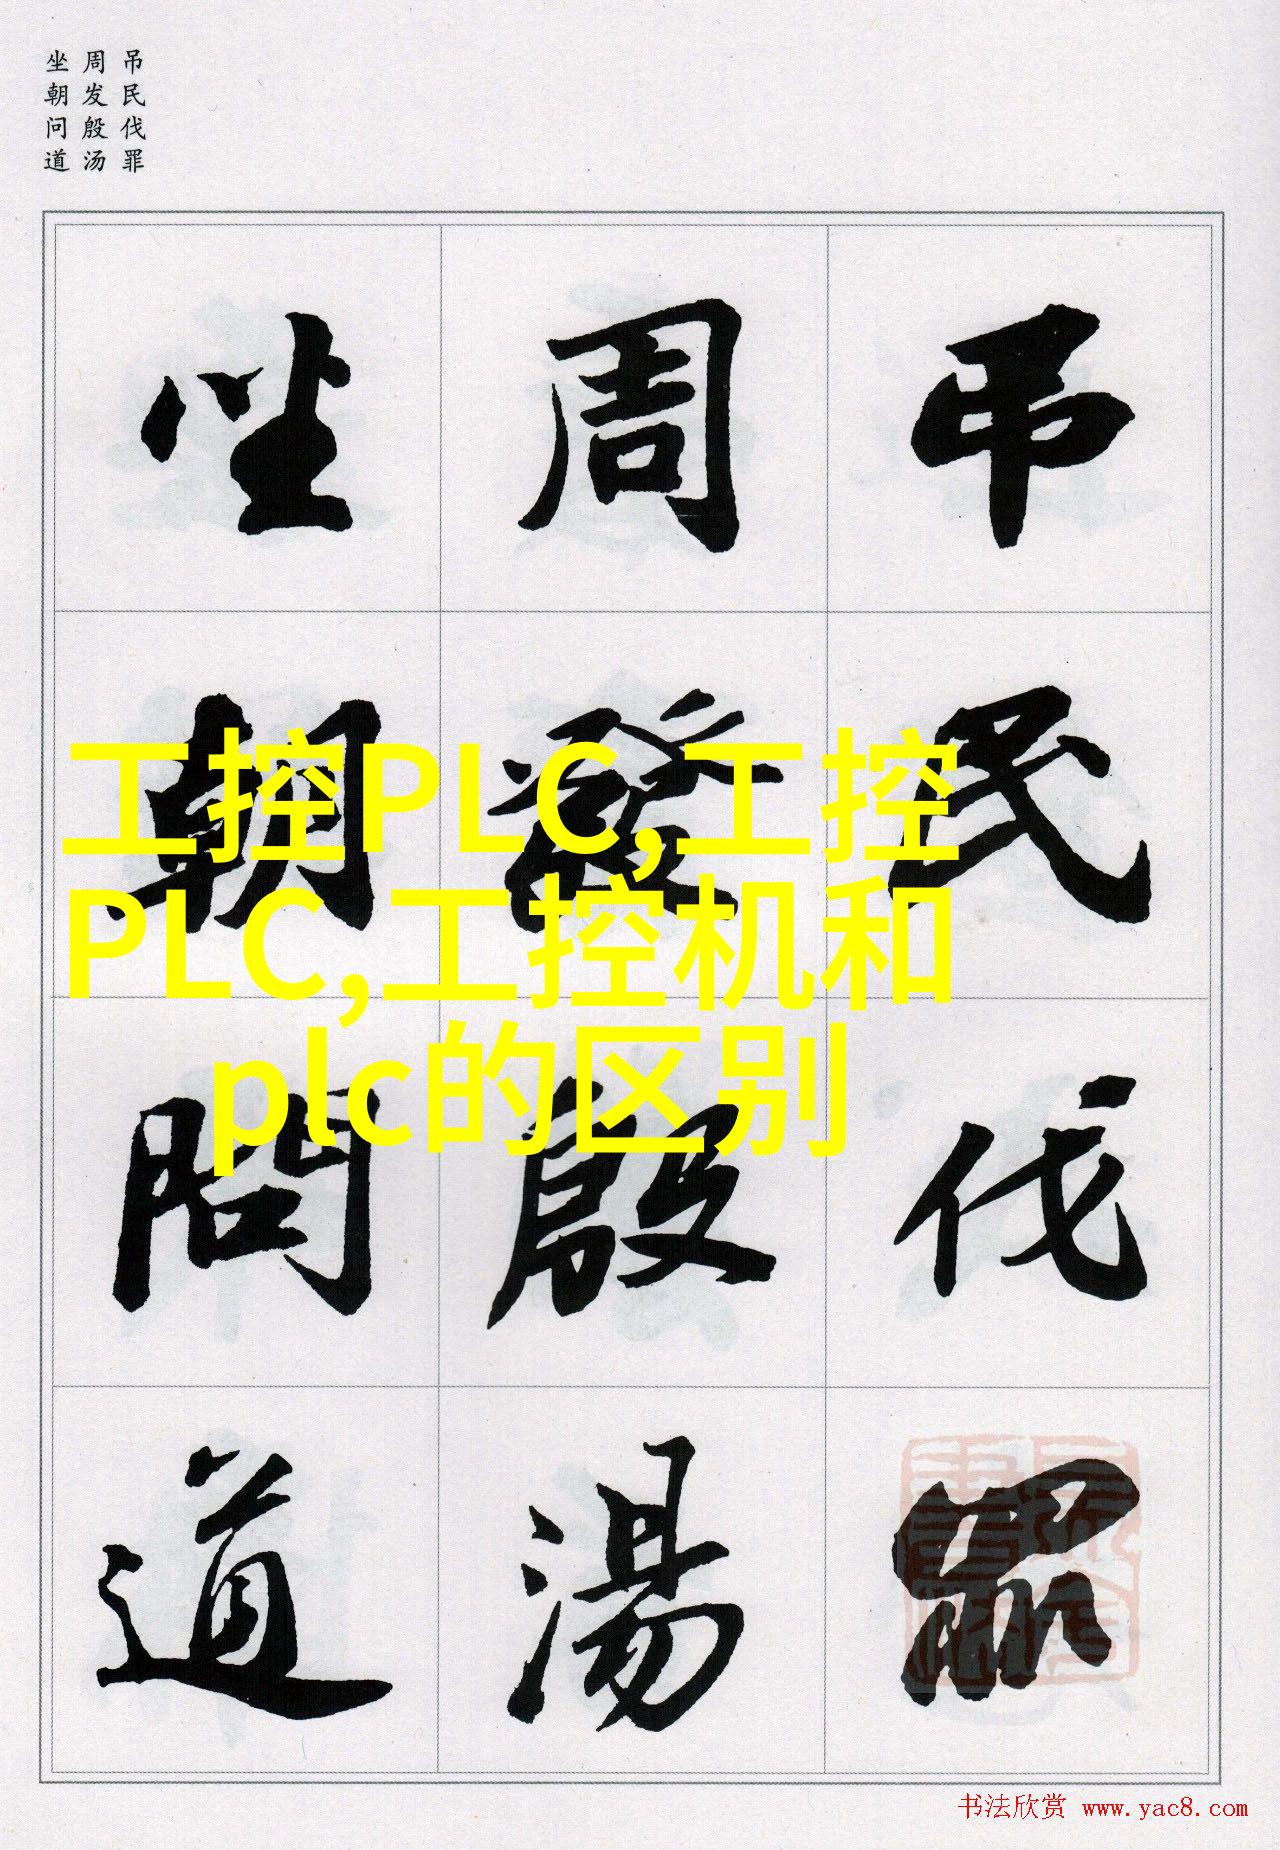 吊民伐罪
周发殷汤
坐朝问道
吊民伐罪
周發殷湯
坐朝問道
工控PLC,工控
PLC,工控机和
plc的区别
书法欣赏 www.yac8.com